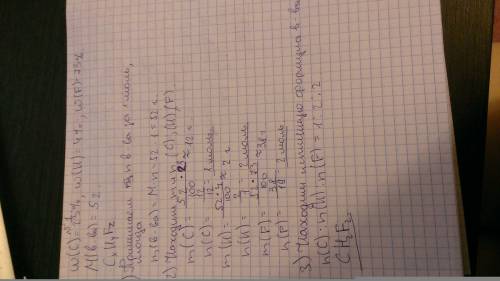 W(C)=23%, W(H)=4%, W(F)=73%
M(в-ва)=52.
CxHyFz
1) Принимаем n в-ва за 1 моль,
тогда
m(в-ва)=M·n=52·1=52 г
2) Находим m и n (C),(H),(F)
m(C)= 52·23/100 ≈ 12 г
n(C)= 12/12 = 1 моль
m(H)= 52·4/100 ≈ 2 г
n(H)= 2/1 = 2 моль
m(F)= 52·73/100 ≈ 38 г
n(F)= 38/19 = 2 моль
3) Находим формулу в-ва
n(C):n(H):n(F)=1:2:2
CH2F2